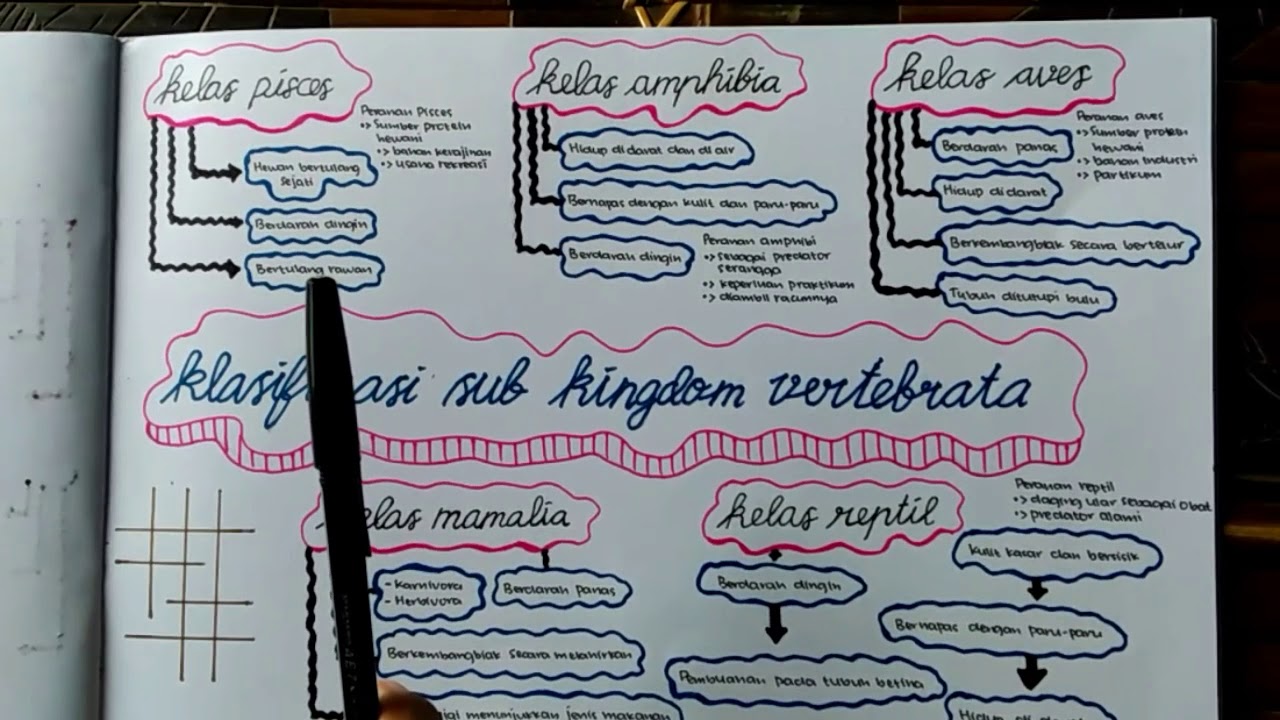 kelas pisces
Peranan Pisces
•> Sumber protein
hewani
•> bahan kerajinan
•> usaha rekreasi
Hewan bertulang
sejati
Berdarah dingin
Bertulang rawan
kelas amphibia
Hidup di darat dan di air
Bernapas dengan kulit dan paru-paru
Berdarah dingin
Peranan amphibi
•> sebagai predator
serangga
•> keperluan praktikum
•> diambil racunnya
kelas aves
Peranan aves
•> Sumber protein
hewani
•> bahan industri
•> partikum
Berdarah panas
Hidup di darat
Berkembangbiak secara bertelur
Tubuh ditutupi bulu
sub kingdom vertebrata
mamalia
- Karnivora
- Herbivora
Berdarah panas
Berkembangbiak secara melahirkan
menunjukkan jenis makanan
kelas reptil
Peranan reptil
•> daging ular sebagai obat
•> predator alami
Berdarah dingin
Pembuahan pada tubuh betina
Kulit kasar dan bersisik
Bernapas dengan paru-paru
Hidup di